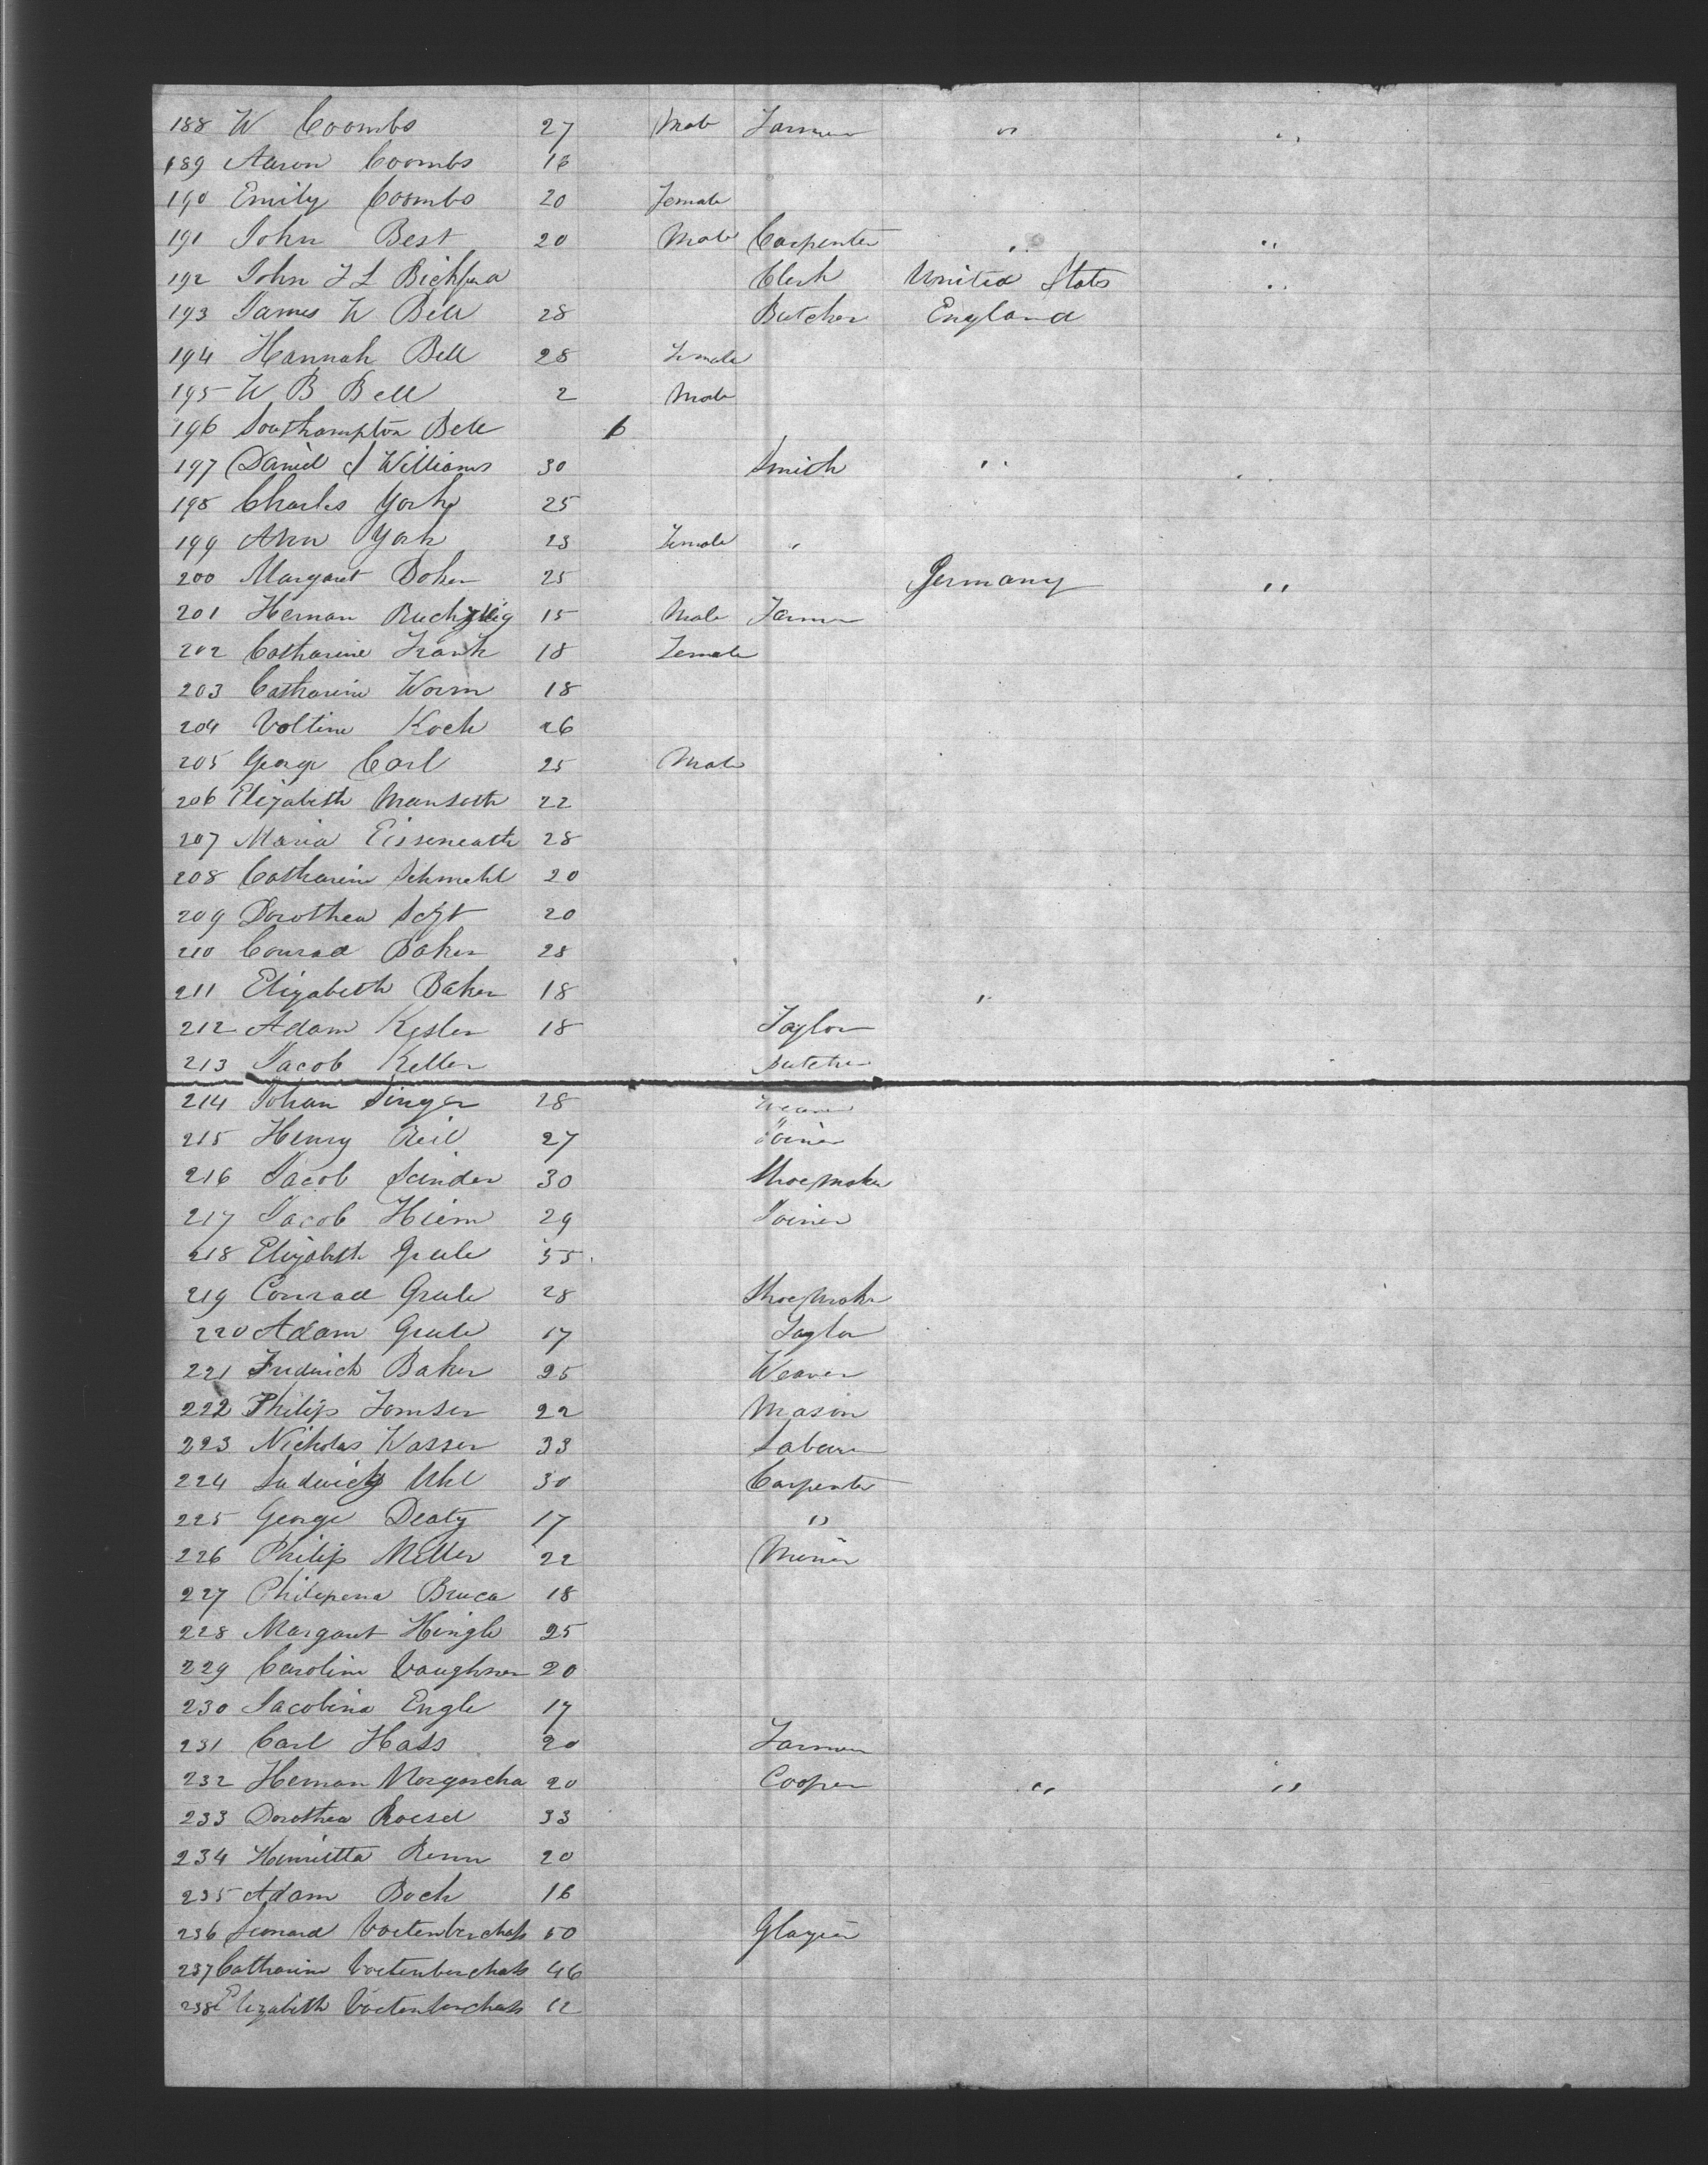 188 W Coombs 27 Male Farmer " "
189 Aaron Coombs 16
190 Emily Coombs 20 Female
191 John Best 20 Male Carpenter " "
192 John Clerk United States "
193 James W Bell 28 Butcher England
194 Hannah Bell 28 Female
195 W B Bell 2 Male
196 Southampton Bell 6
197 Daniel J Williams 30 Smith " "
198 Charles York 25
199 Ann York 23 Female "
200 Margaret Boker 25 Germany "
201 Herman 15 Male Farmer
202 Catharine Frank 18 Female
203 Catharine Worm 18
204 Voltine Koch 26
205 George Carl 25 Male
206 Elizabeth 22
207 Maria Eiseneath 28
208 Catharine Schmehl 20
209 Dorothea 20
210 Conrad Baker 28
211 Elizabeth Baker 18 "
212 Adam Kesler 18 Taylor
213 Jacob Keller Butcher
214 Johan Singer 28 Weaver
215 Henry 27 Joiner
216 Jacob 30 Shoemaker
217 Jacob Hiem 29 Joiner
218 Elizabeth Grule 55
219 Conrad Grule 28 Shoemaker
220 Adam Grule 17 Taylor
221 Frederick Baker 25 Weaver
222 Philip 22 Mason
223 Nicholas Wasser 33 Laborer
224 Ludwick Uhl 30 Carpenter
225 George Deaty 17 "
226 Philip Miller 22 Miner
227 Philipena Bruca 18
228 Margaret Hingle 25
229 Caroline Vaughner 20
230 Jacobina Engle 17
231 Carl Hass 20 Farmer
232 Herman 20 Cooper " "
233 Dorothea Roesel 33
234 Henrietta Renn 20
235 Adam Boch 16
236 Leonard 50 Glazier
237 Catharine 46
238 Elizabeth 12